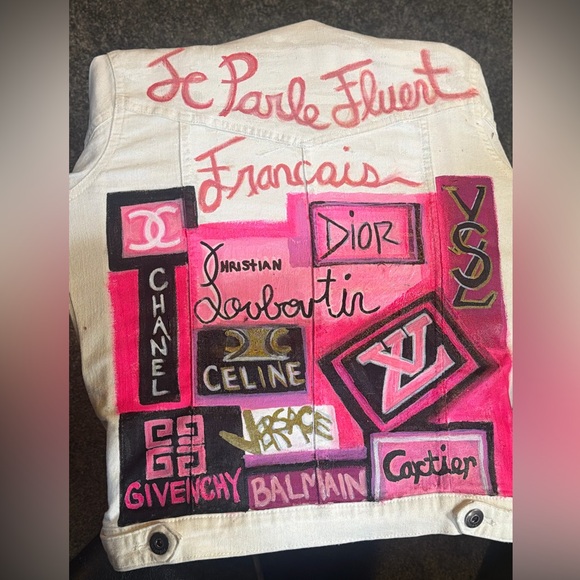 Je Parle Fluent
Francais
DIOR
YSL
CHANEL
CHRISTIAN
Louboutin
CELINE
LV
VERSACE
GIVENCHY
BALMAIN
Cartier